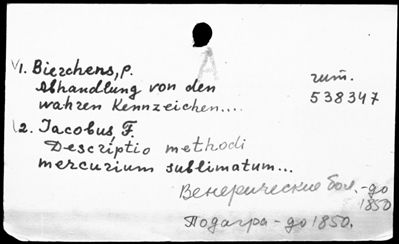 A
1. Bierchens, P.
Abhandlung von den
wahren Kennzeichen....
rum.
538347
2. Jacobus F.
Descriptio methodi
mercurium sublimatum...
Венерические бол. - до
1850
Подагра - до 1850.